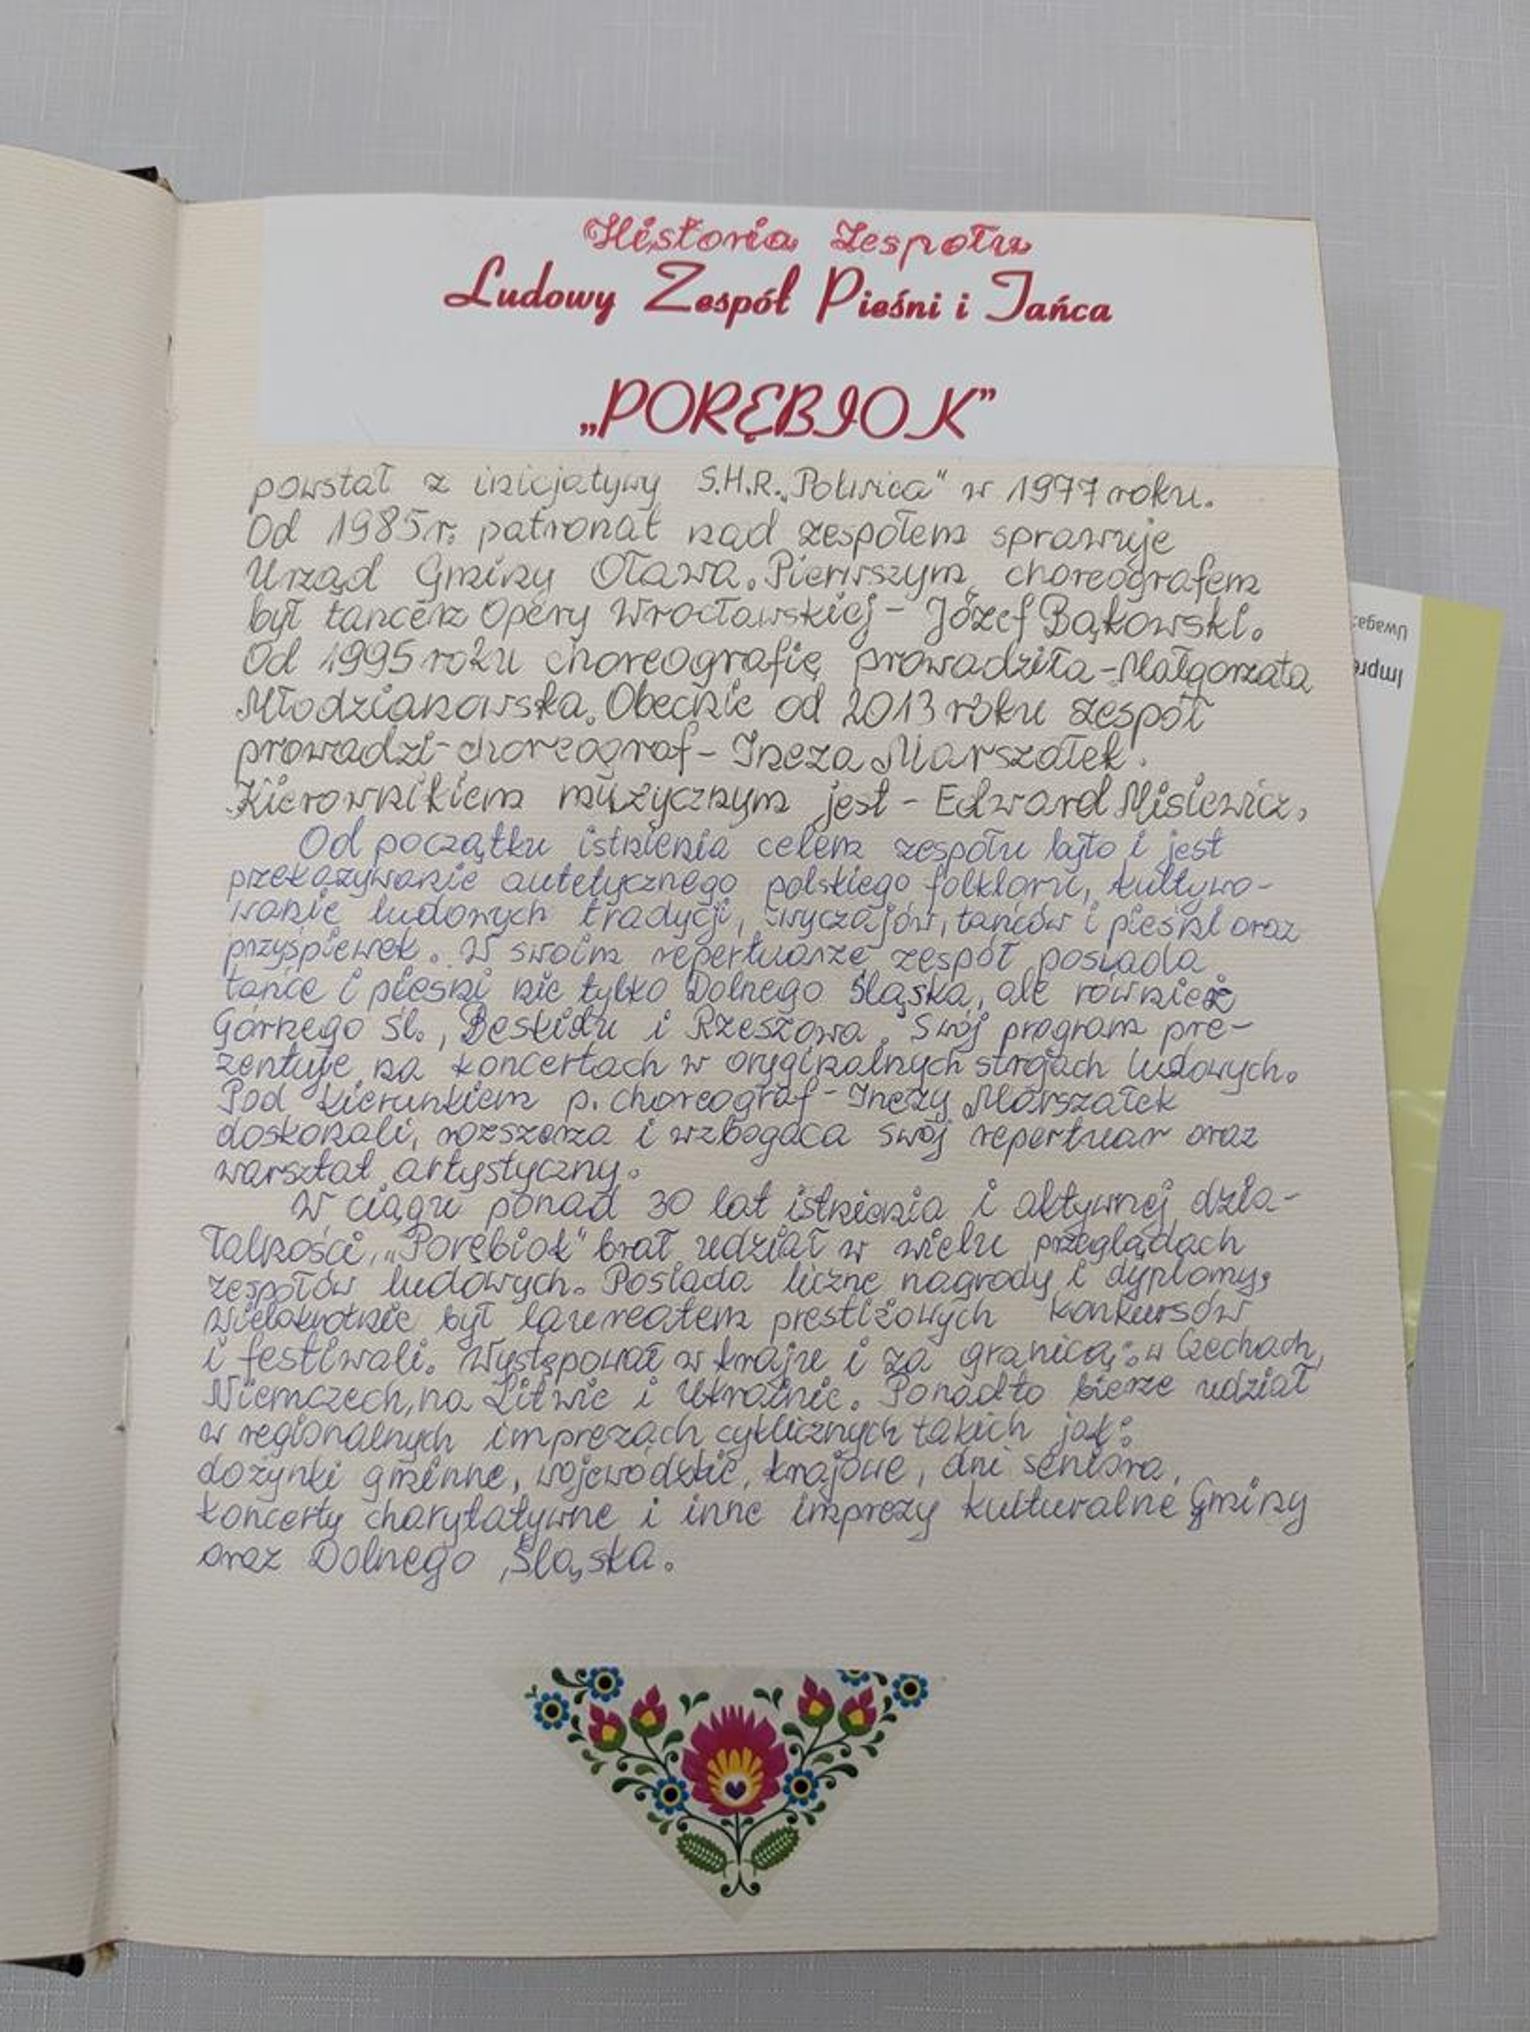 Historia Zespołu
Ludowy Zespół Pieśni i Tańca
„PORĘBIOK”
powstał z inicjatywy S.H.R. „Polwica" w 1977 roku.
Od 1985 r. patronat nad zespołem sprawuje
Urząd Gminy Oława. Pierwszym choreografem
był tancerz Opery Wrocławskiej - Józef Bąkowski.
Od 1995 roku choreografię prowadziła - Małgorzata
Młodzianowska. Obecnie od 2013 roku zespół
prowadzi - choreograf - Ineza Marszałek.
Kierownikiem muzycznym jest - Edward Misiewicz.
Od początku istnienia celem zespołu było i jest
przekazywanie autetycznego polskiego folkloru, kultywo-
wanie ludowych tradycji, zwyczajów, tańców i pieśni oraz
przyśpiewek. W swoim repertuarze zespół posiada
tańce i pieśni nie tylko Dolnego Śląska, ale również
Górnego Śl., Beskidu i Rzeszowa. Swój program pre-
zentuje na koncertach w oryginalnych strojach ludowych.
Pod kierunkiem p. choreograf - Inezy Marszałek
doskonali, rozszerza i wzbogaca swój repertuar oraz
warsztat artystyczny.
W ciągu ponad 30 lat istnienia i aktywnej dzia-
łalności, „Porębiok" brał udział w wielu przeglądach
zespołów ludowych. Posiada liczne nagrody i dyplomy,
wielokrotnie był laureatem prestiżowych konkursów
i festiwali. Występował w kraju i za granicą: w Czechach,
Niemczech, na Litwie i Ukrainie. Ponadto bierze udział
w regionalnych imprezach cyklicznych takich jak:
dożynki gminne, wojewódzkie, krajowe, dni seniora,
koncerty charytatywne i inne imprezy kulturalne Gminy
oraz Dolnego Śląska.
Uwaga:
Impre